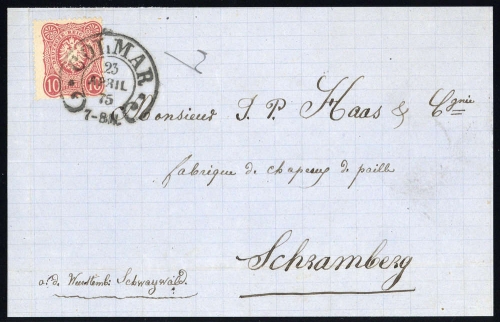 10 10
COLMAR
23
APRIL
75
7-8N.
Monsieur J. P. Haas & Cgnie
fabrique de chapeux de paille
Schramberg
a. d. Wurttemb. Schwarzwald.